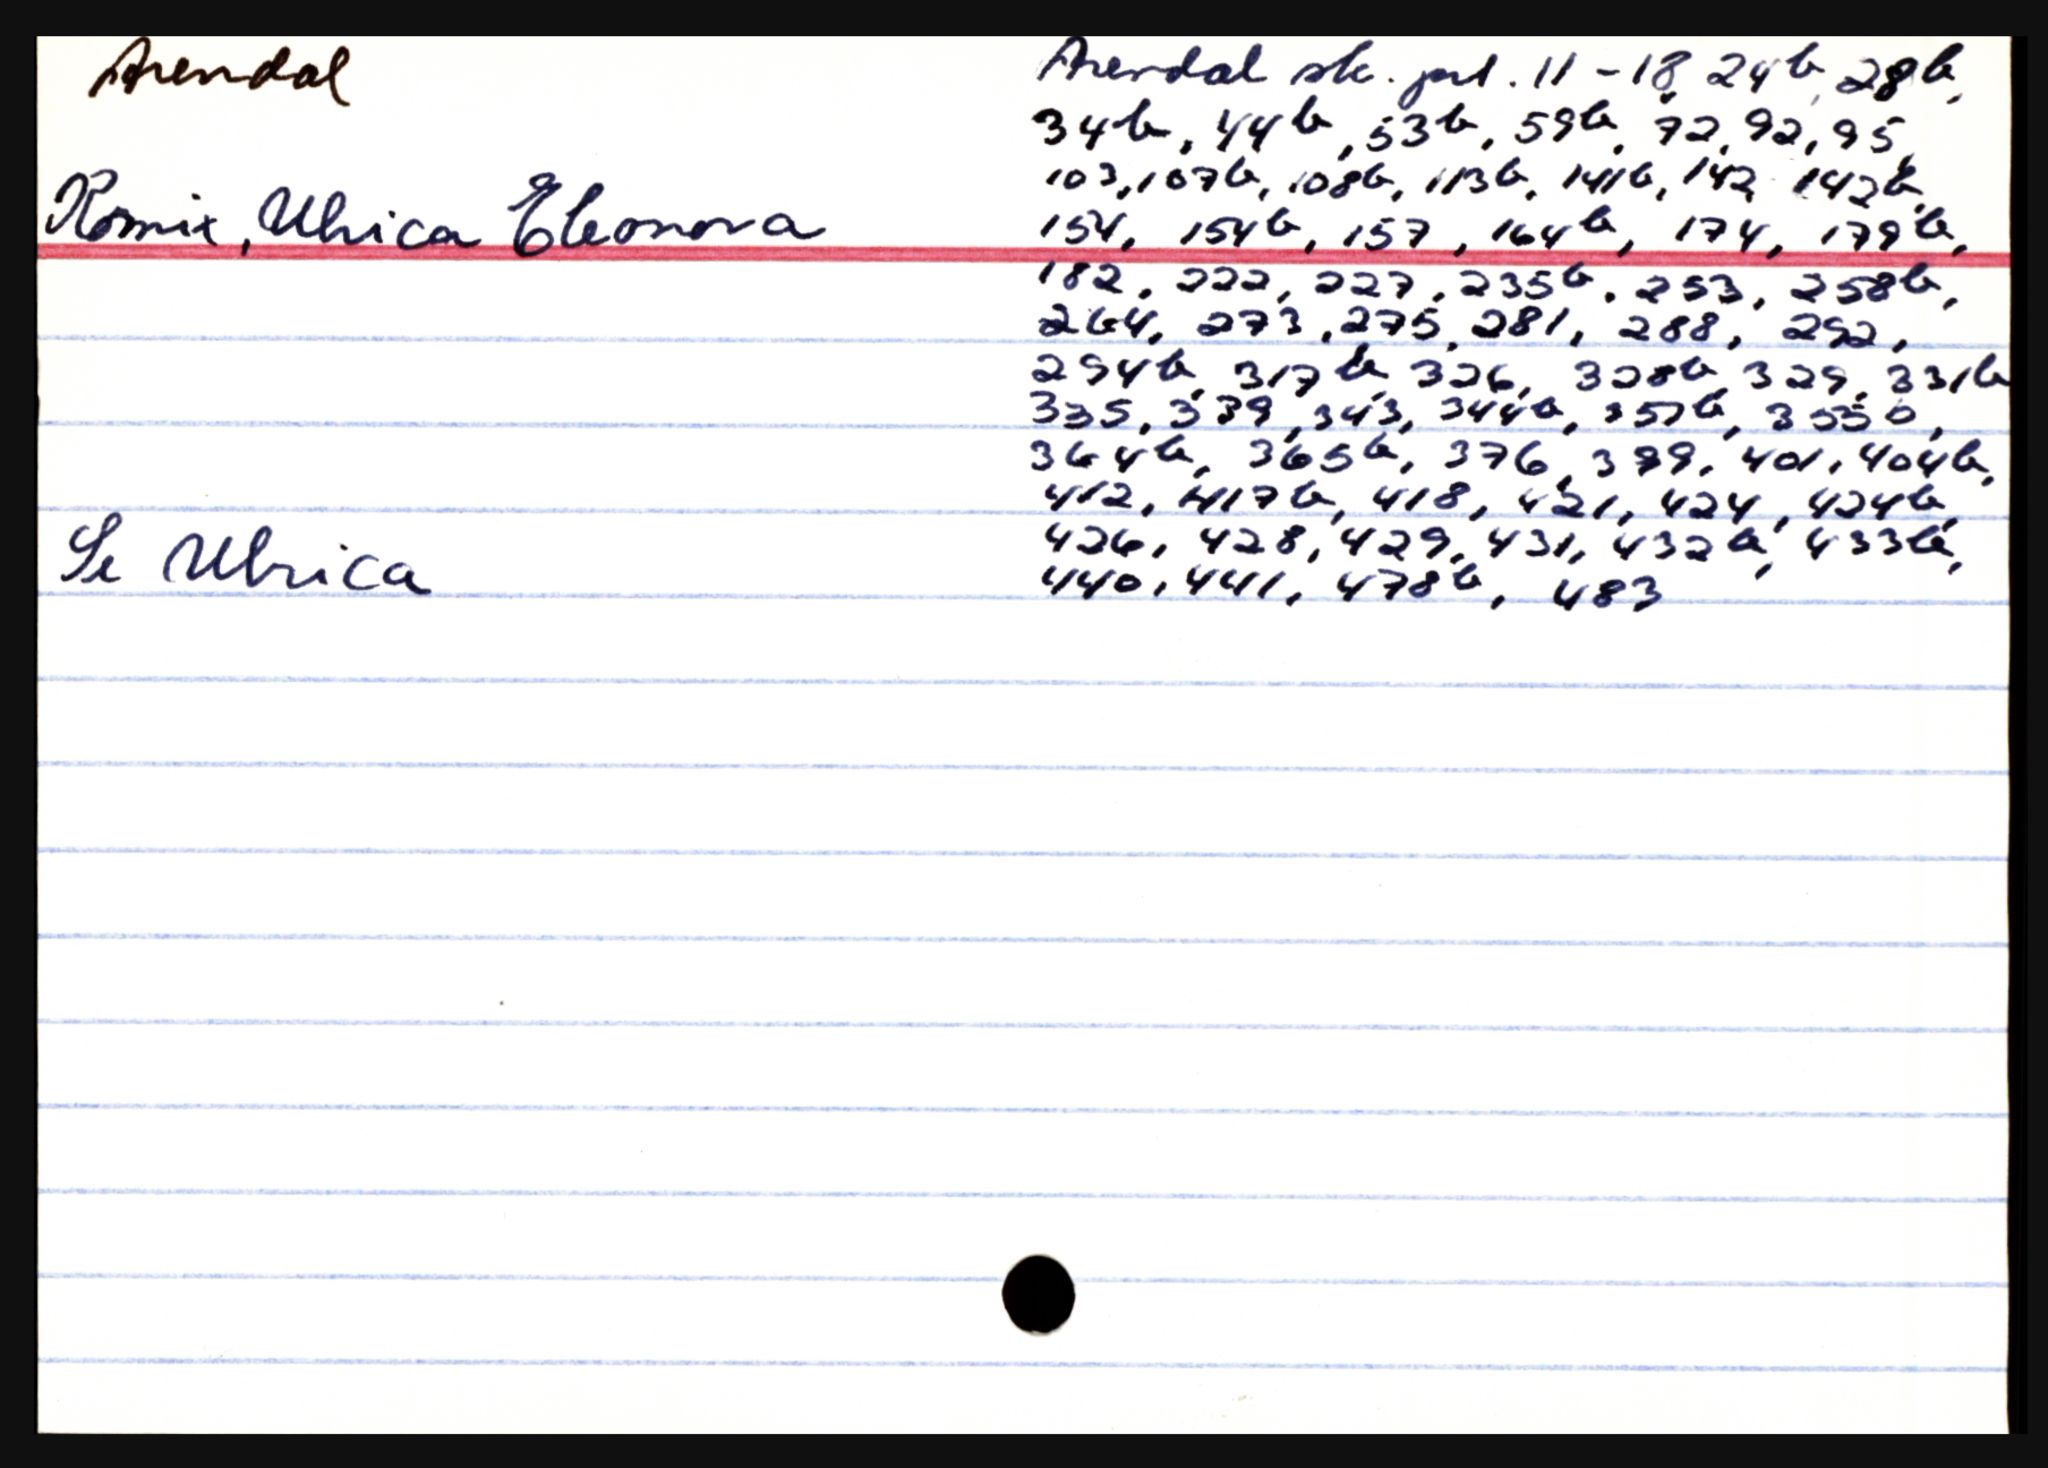 Arendal
Romix, Ulrica Eleonora
Se Ulrica
Arendal sk. prt. 11-18, 24b, 28b,
34b, 44b, 53b, 59b, 72, 92, 95,
103, 107b, 108b, 113b, 141b, 142, 142b,
154, 154b, 157, 164b, 174, 179b,
182, 222, 227, 235b, 253, 258b,
264, 273, 275, 281, 288, 292,
294b, 317b, 326, 328b, 329, 331b
335, 339, 343, 344b, 357b,
364b, 365b, 376, 399, 401, 404b,
412, 417b, 418, 421, 424, 424b,
426, 428, 429, 431, 432b, 433b,
440, 441, 478b, 483